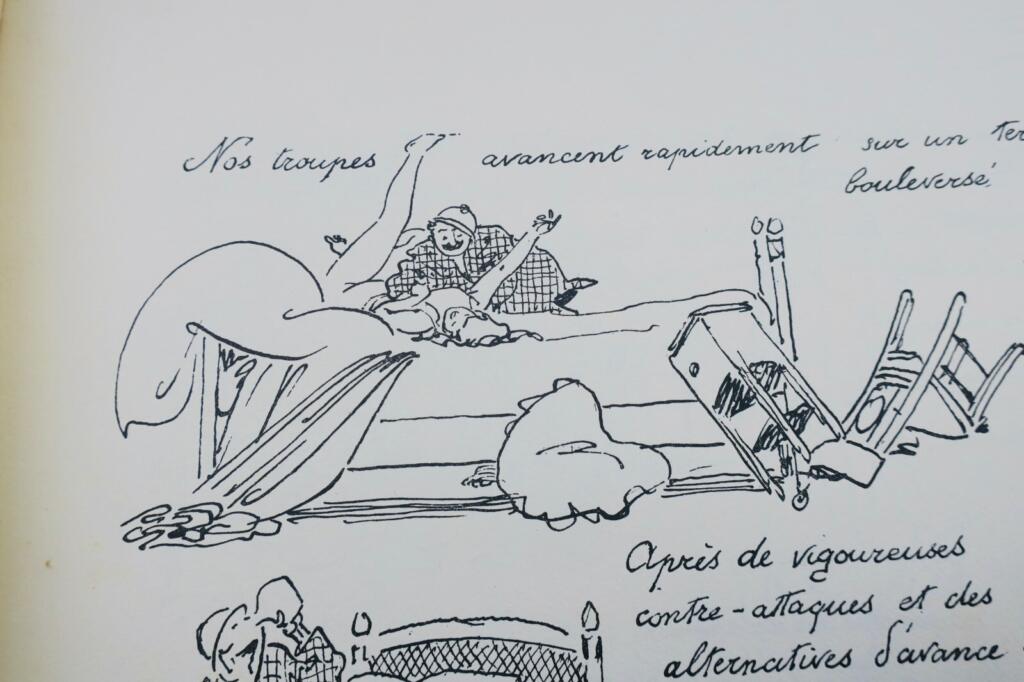 Nos troupes avancent rapidement sur un ter
bouleversé.
Après de vigoureuses
contre-attaques et des
alternatives d'avance